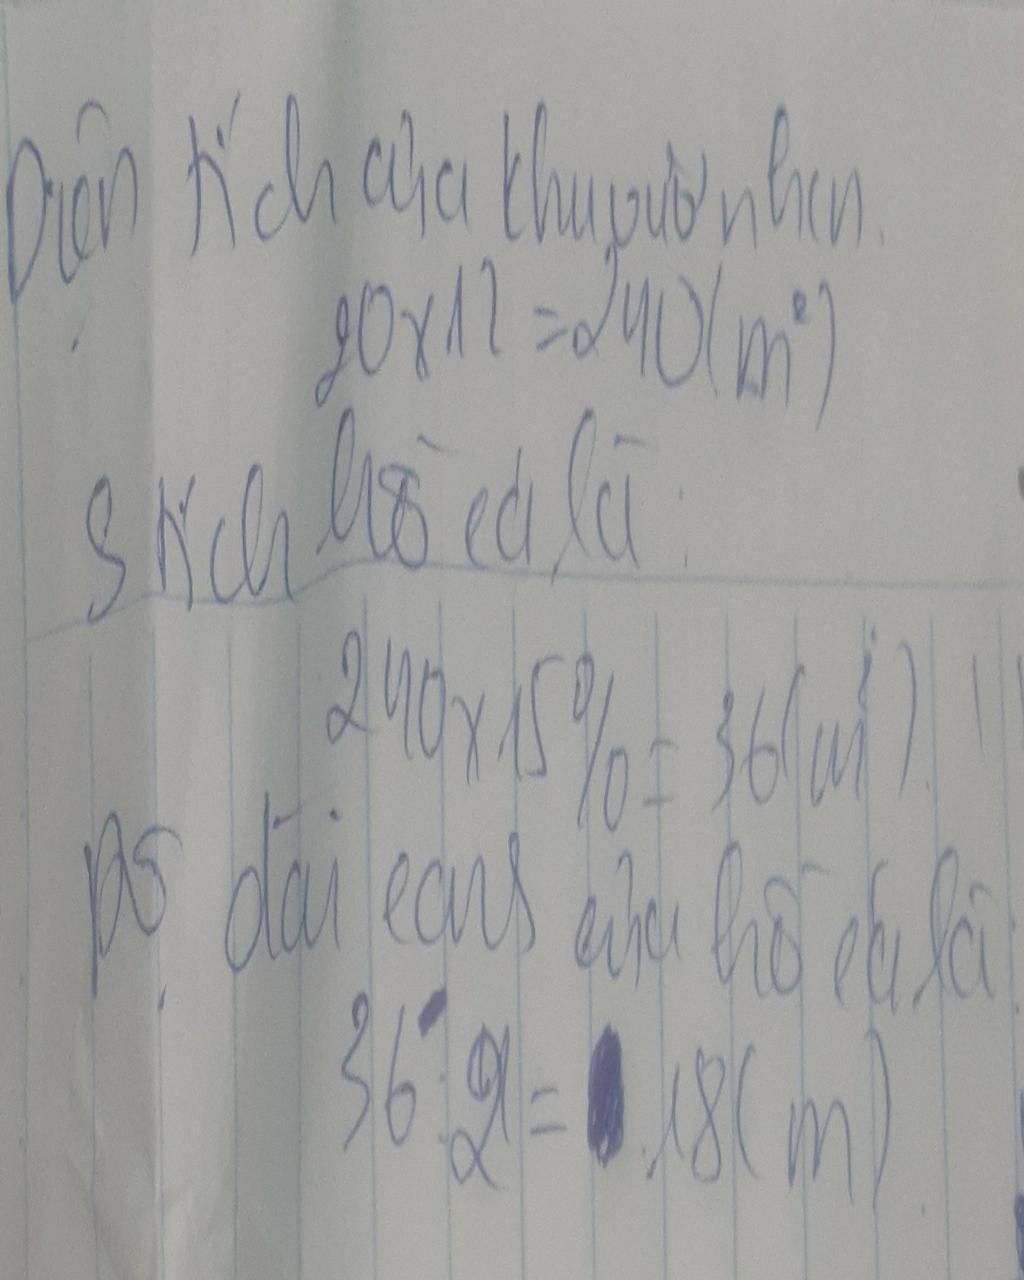 Diện tích của khu vườn hcn.
20 x 12 = 240 (m²)
S tích hồ cá là:
240 x 15% = 36 (m²).
Độ dài cạnh của hồ cá là:
36 : 2 = 18 (m)